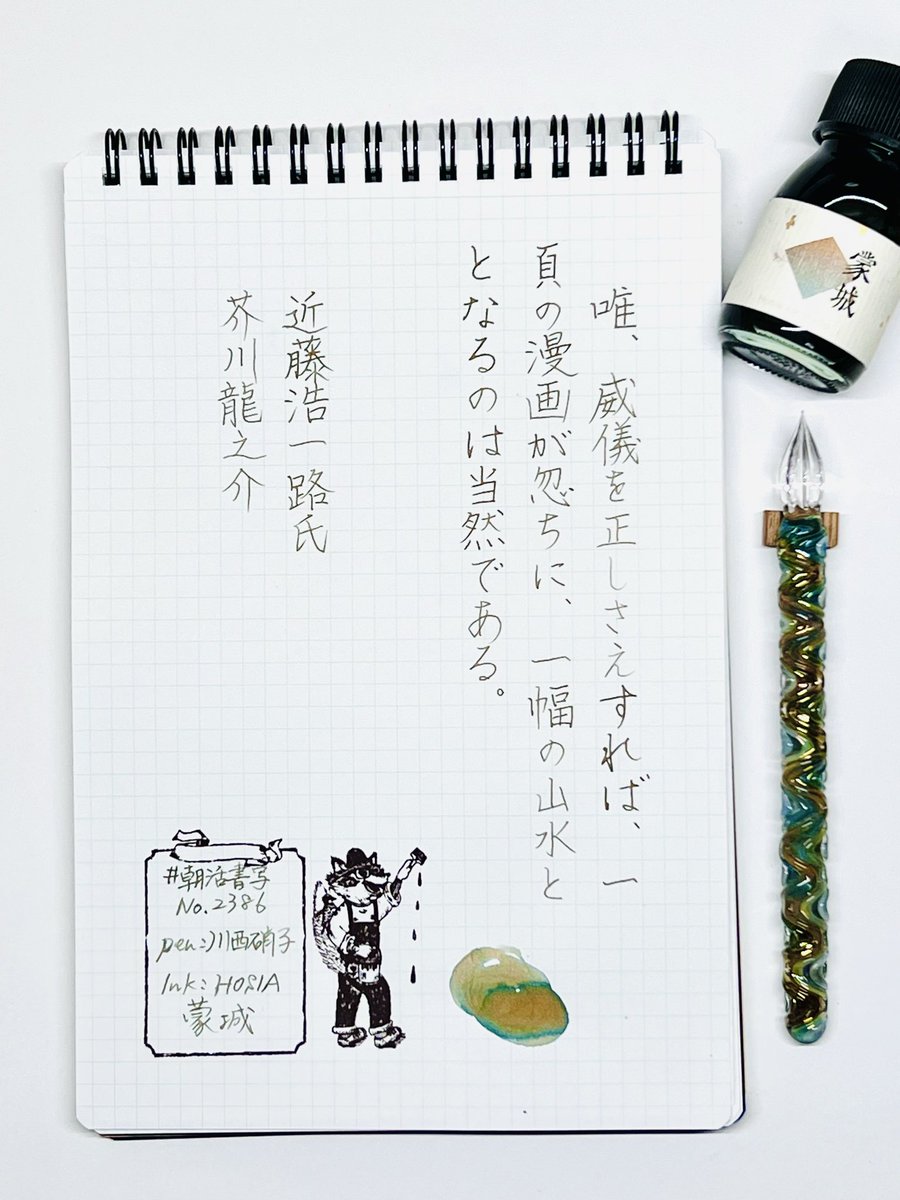 唯、威儀を正しさえすれば、一
頁の漫画が忽ちに、一幅の山水と
となるのは当然である。
近藤浩一路氏
芥川龍之介
#朝活書写
No.2386
pen:川西硝子
Ink:HOSIA
蒙城
蒙城